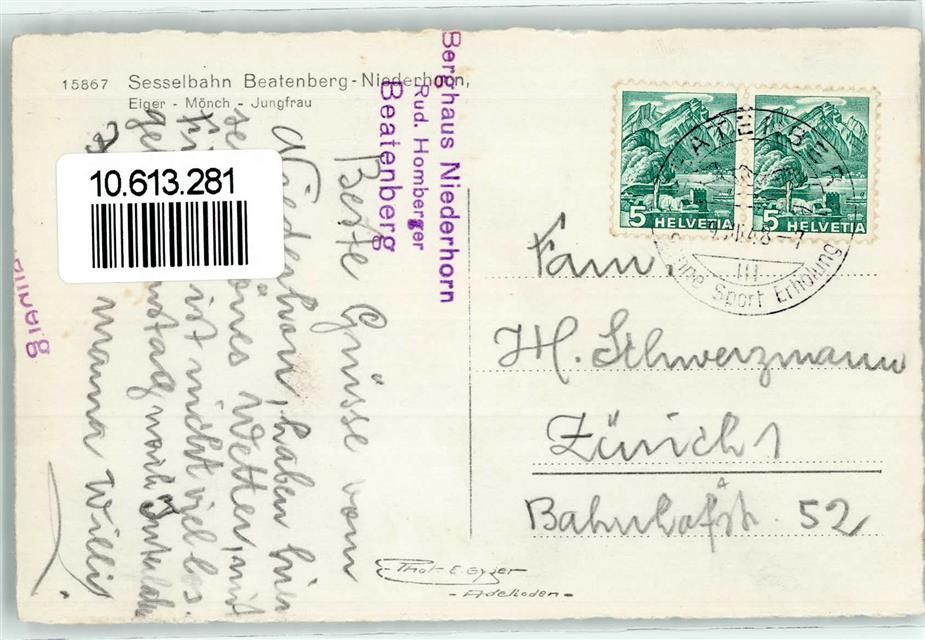 15867 Sesselbahn Beatenberg-Niederhorn,
Eiger - Mönch - Jungfrau
10.613.281
Berghaus Niederhorn
Rud. Homberger
Beatenberg
Beste Grüsse vom
Niederhorn, haben hier
Wetter, mit
ist nicht viel los.
nach Interlaken
Mama Willi
HELVETIA 5
HELVETIA 5
Sonne Sport Erholung
Fam.
H. Schwerzmann
Zürich 1
Bahnhofstr. 52
Phot. E. Gyger
- Adelboden -